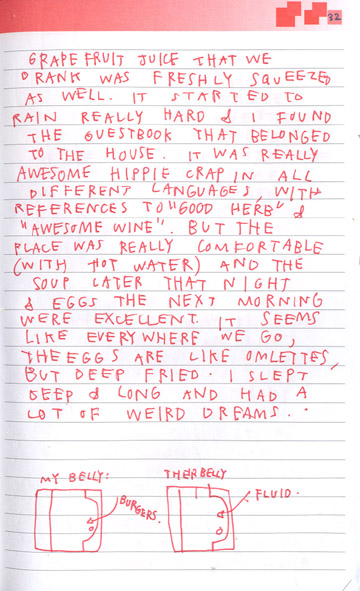 32
GRAPE FRUIT JUICE THAT WE
DRANK WAS FRESHLY SQUEEZED
AS WELL. IT STARTED TO
RAIN REALLY HARD & I FOUND
THE GUESTBOOK THAT BELONGED
TO THE HOUSE. IT WAS REALLY
AWESOME HIPPIE CRAP IN ALL
DIFFERENT LANGUAGES, WITH
REFERENCES TO "GOOD HERB" &
"AWESOME WINE". BUT THE
PLACE WAS REALLY COMFORTABLE
(WITH HOT WATER) AND THE
SOUP LATER THAT NIGHT
& EGGS THE NEXT MORNING
WERE EXCELLENT. IT SEEMS
LIKE EVERYWHERE WE GO,
THE EGGS ARE LIKE OMLETTES,
BUT DEEP FRIED. I SLEPT
DEEP & LONG AND HAD A
LOT OF WEIRD DREAMS..
MY BELLY:
BURGERS.
THER BELLY
FLUID.